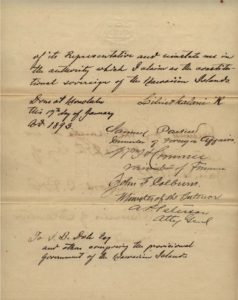 of its Representative and reinstate me in
the authority which I claim as the constitu-
tional sovereign of the Hawaiian Islands
Done at Honolulu
this 17th day of January
A.D. 1893.
Liliuokalani R
Samuel Parker
Minister of Foreign Affairs
Minister of Finance
John F. Colburn
Minister of the Interior
A. P. Peterson
Atty Genl
To S. B. Dole Esq
and others composing the provisional
Government of the Hawaiian Islands